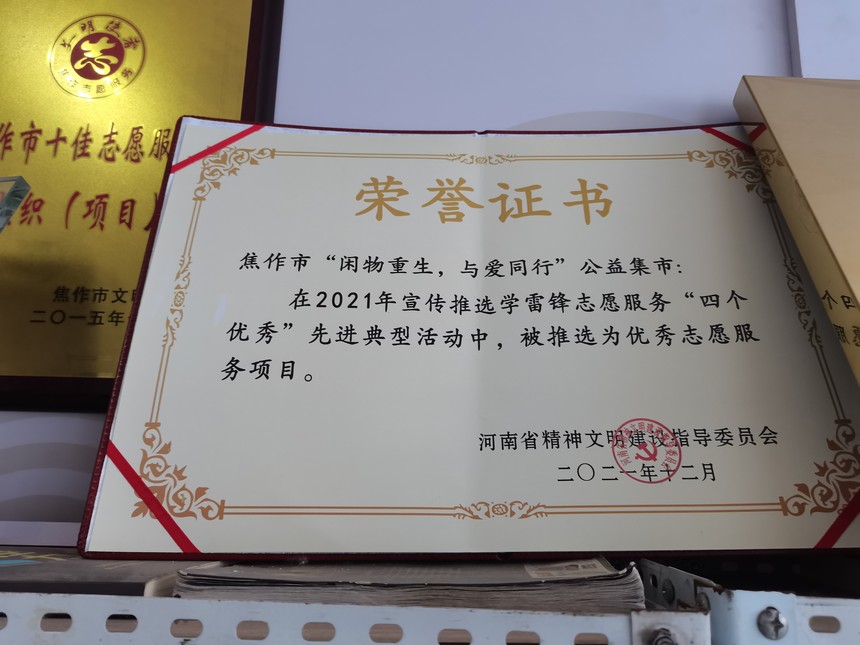 作市十佳志愿服
织（项目）
焦作市文明
二〇一五年
荣誉证书
焦作市“闲物重生，与爱同行”公益集市：
在2021年宣传推选学雷锋志愿服务“四个
优秀”先进典型活动中，被推选为优秀志愿服
务项目。
河南省精神文明建设指导委员会
二〇二一年十二月